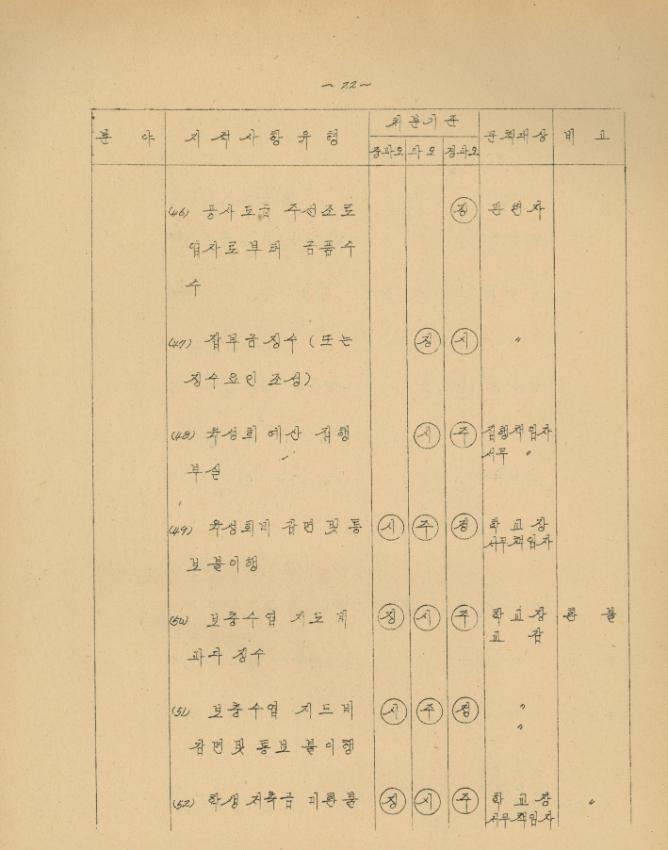 - 22 -
분 야 지적사항유형 처분기준 문책대상 비고
중과오 과오 경과오
(46) 공사도급 주선조로 징 관련자
업자로부터 금품수
수
(47) 잡부금징수 (또는 징 시 〃
징수요인 조성)
(48) 육성회 예산 집행 시 주 집행책임자
부실 서무 〃
(49) 육성회비 감면 및 통 시 주 경 학교장
보불이행 서무책임자
(50) 보충수업 지도비 징 시 주 학교장 환불
과다 징수 교감
(51) 보충수업 지도비 시 주 경 〃
감면및 통보 불이행 〃
(52) 학생저축금 미환불 징 시 주 학교장 〃
서무책임자